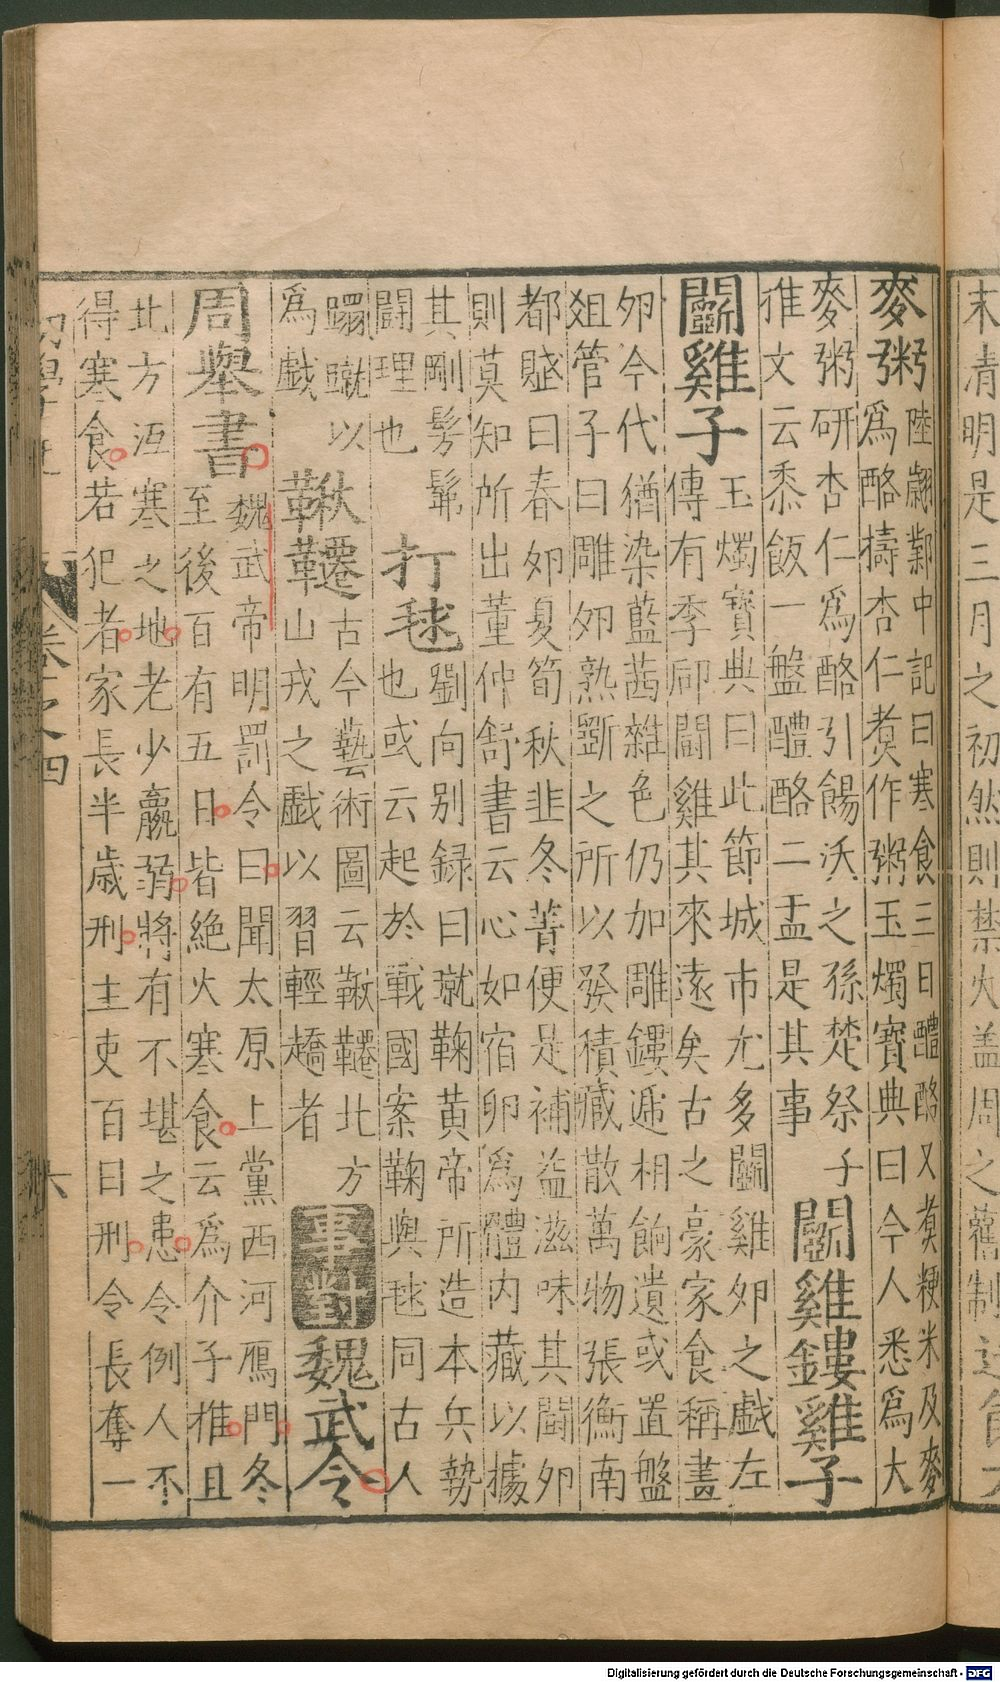 末清明是三月之初然則禁火蓋周之舊制
麥粥
陸翽鄴中記曰寒食三日醴酪又煑粳米及麥
爲酪擣杏仁煑作粥玉燭寶典曰今人悉爲大
麥粥研杏仁爲酪引餳沃之孫楚祭子
推文云黍飯一盤醴酪二盂是其事
鬭雞鏤雞子
鬭雞子
玉燭寶典曰此節城市尤多鬭雞卵之戯左
傳有季郈鬭雞其來遠矣古之豪家食稱畫
卵今代猶染藍茜雜色仍加雕鏤遞相餉遺或置盤
爼管子曰雕卵熟斵之所以發積藏散萬物張衡南
都賦曰春卵夏筍秋韭冬菁便是補益滋味其鬭卵
則莫知所出董仲舒書云心如宿卵爲體内藏以據
其剛髣髴
鬭理也
打毬
劉向别録曰蹴鞠黄帝所造本兵勢
也或云起於戰國案鞠與毬同古人
蹋蹴以
爲戯
鞦韆
古今藝術圖云鞦韆北方
山戎之戯以習輕趫者
事對
魏武令
周舉書
魏武帝明罰令曰聞太原上黨西河鴈門冬
至後百有五日皆絶火寒食云爲介子推且
北方沍寒之地老少羸弱將有不堪之患令例人不
得寒食若犯者家長半歳刑主吏百日刑令長奪一
卷之四
六
Digitalisierung gefördert durch die Deutsche Forschungsgemeinschaft - DFG